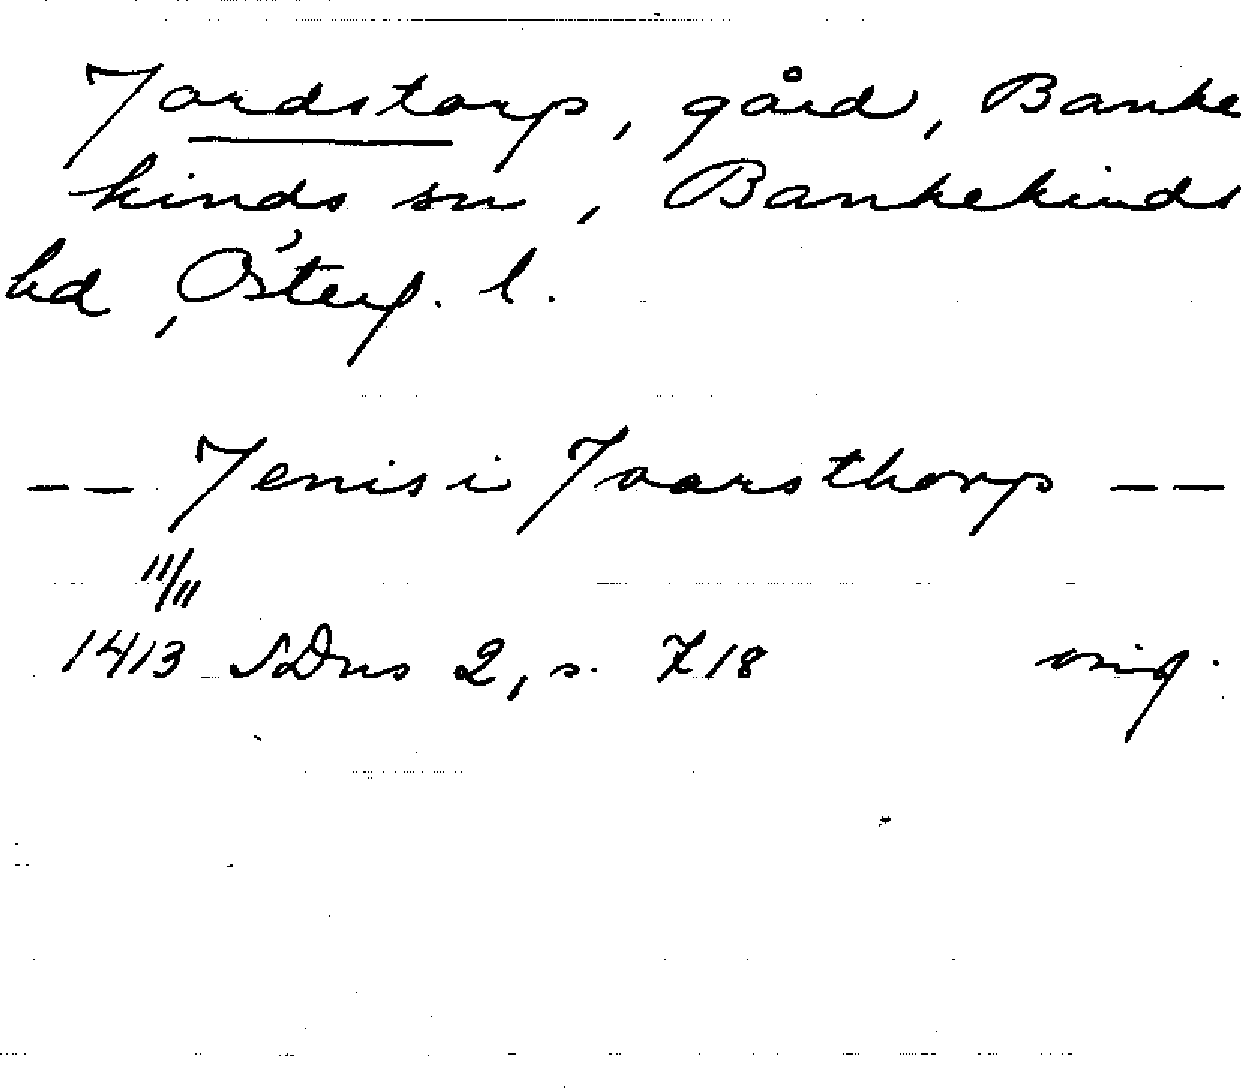 Jordstorp, gård, Banke
kinds sn, Bankekinds
hd, Österg. l.
-- Jenis i Joarsthorp --
11/11
1413 SDns 2, s. 718 orig.